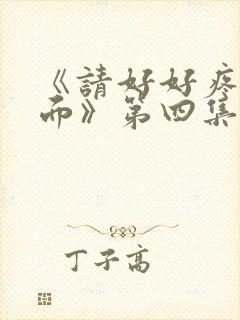 《請好好疼
而》第四集
丁子高